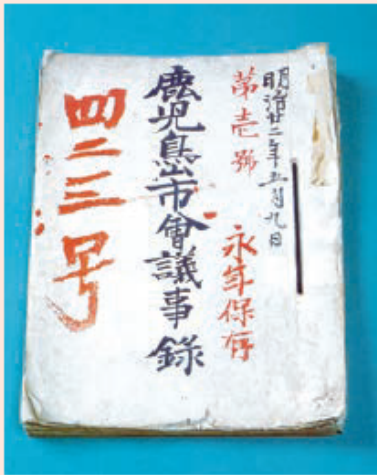 明治廿二年五月九日
第壱號 永年保存
鹿児島市會議事録
四二三号